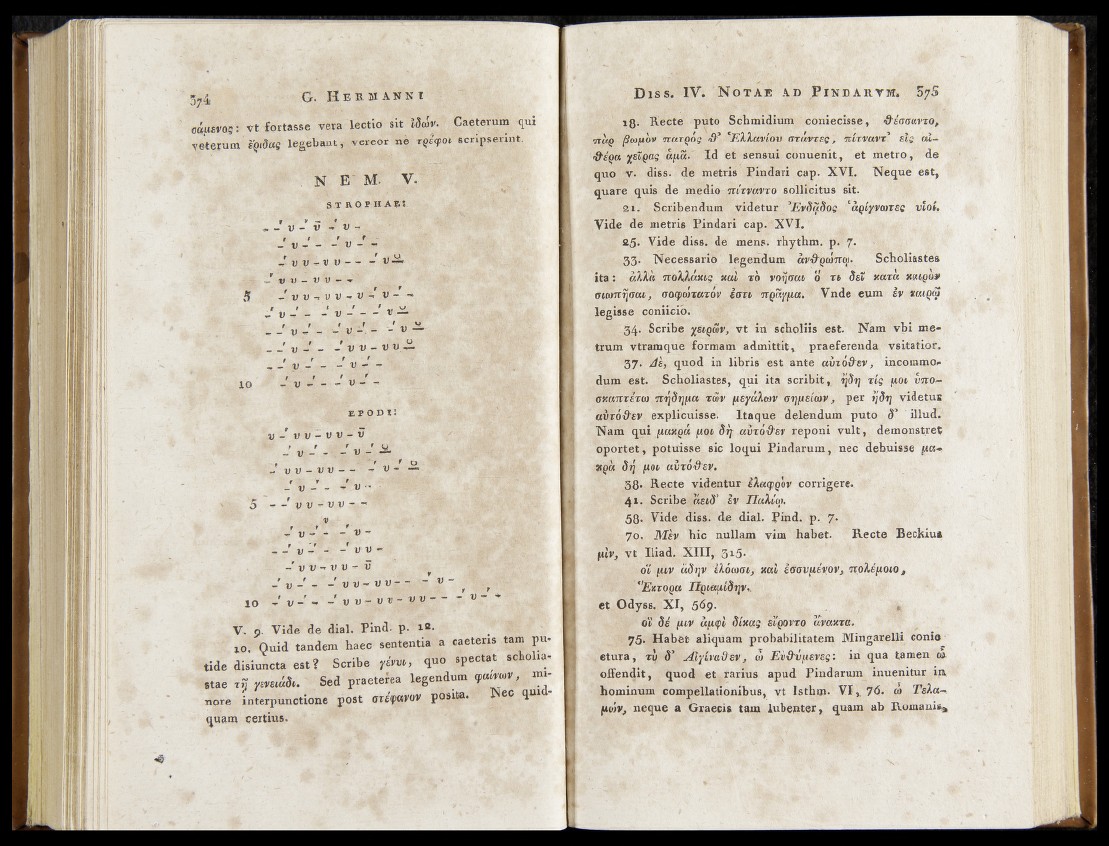 374 G. HERMANNI
σάμενος: vt fortasse vera lectio sit ἰδών. Caeterum qui
veterum ἔριδας legebant, vereor ne τρέφοι scripserint.
NEM. V.
STROPHAE:
5
10
EPODI:
5
10
V. 9. Vide de dial. Pind. p. 12.
10. Quid tandem haec sententia a caeteris tam pu-
tide disiuncta est? Scribe γένυι, quo spectat scholia-
stae τῇ γενειάδι. Sed praeterea legendum φαίνων, mi-
nore interpunctione post στέφανον posita. Nec quid-
quam certius.
DISS. IV. NOTAE AD PINDARVM. 375
18. Recte puto Schmidium coniecisse, θέσσαντο,
πὰρ βωμὸν πατρός θ’ Ἑλλανίου στάντες, πίτναντ’ εἰς αἰ-
θέρα χεῖρας ἁμᾶ. Id et sensui conuenit, et metro, de
quo v. diss. de metris Pindari cap. XVI. Neque est,
quare quis de medio πίτναντο sollicitus sit.
21. Scribendum videtur Ἐνδᾷδος ἀρίγνωτες υἱοί.
Vide de metris Pindari cap. XVI.
25. Vide diss. de mens. rhythm. p. 7.
33. Necessario legendum ἀνθρώπῳ. Scholiastes
ita: ἀλλὰ πολλάκις καὶ τὸ νοῆσαι ὅ τι δεῖ κατὰ καιρὸν
σιωπῆσαι, σοφώτατόν ἐστι πρᾶγμα. Vnde eum ἐν καιρῷ
legisse coniicio.
34. Scribe χειρῶν, vt in scholiis est. Nam vbi me-
trum vtramque formam admittit, praeferenda vsitatior.
37. Δὲ, quod in libris est ante αὐτόθεν, incommo-
dum est. Scholiastes, qui ita scribit, ἤδη τίς μοι ὑπο-
σκαπτέτω πηδήμα τῶν μεγάλων σημείων, per ἤδη videtur
αὐτόθεν explicuisse. Itaque delendum puto δ’ illud.
Nam qui μακρά μοι δὴ αὐτόθεν reponi vult, demonstret
oportet, potuisse sic loqui Pindarum, nec debuisse μα-
κρὰ δή μοι αὐτόθεν.
38. Recte videntur ἐλαφρὸν corrigere.
41. Scribe ἀειδ’ ἐν Παλίῳ.
58. Vide diss. de dial. Pind. p. 7.
70. Μὲν hic nullam vim habet. Recte Beckius
μίν, vt Iliad. XIII, 315.
οἵ μιν ἅδην ἐλόωσι, καὶ ἐσσυμένον, πολέμοιο,
Ἕκτορα Πριαμίδην.
et Odyss. XI, 569.
οἵ δέ μιν ἀμφὶ δίκας εἴροντο ἄνακτα.
75. Habet aliquam probabilitatem Mingarelli conie
ctura, τὺ δ’ Αἰγίναθεν, ὦ Εὐθύμενες: in qua tamen ὦ
offendit, quod et rarius apud Pindarum inuenitur in
hominum compellationibus, vt Isthm. VI, 76. ὦ Τελα-
μών, neque a Graecis tam lubenter, quam ab Romanis,